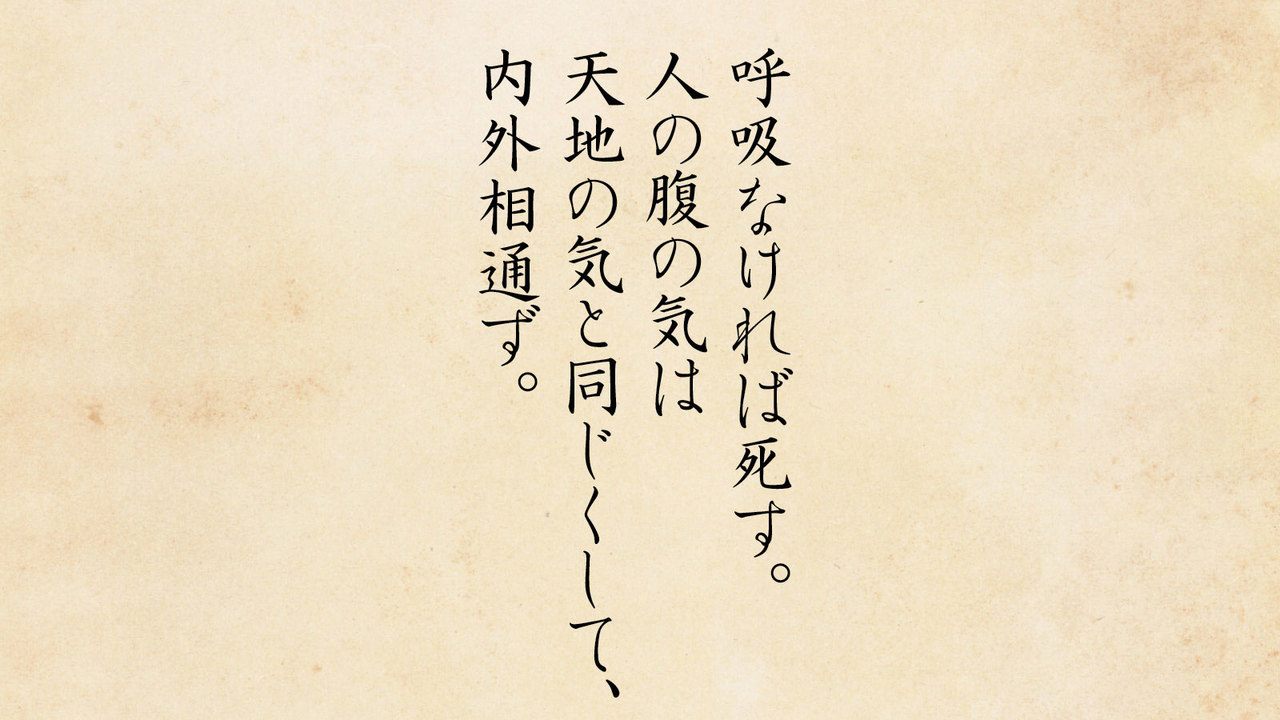 呼吸なければ死す。
人の腹の気は
天地の気と同じくして、
内外相通ず。